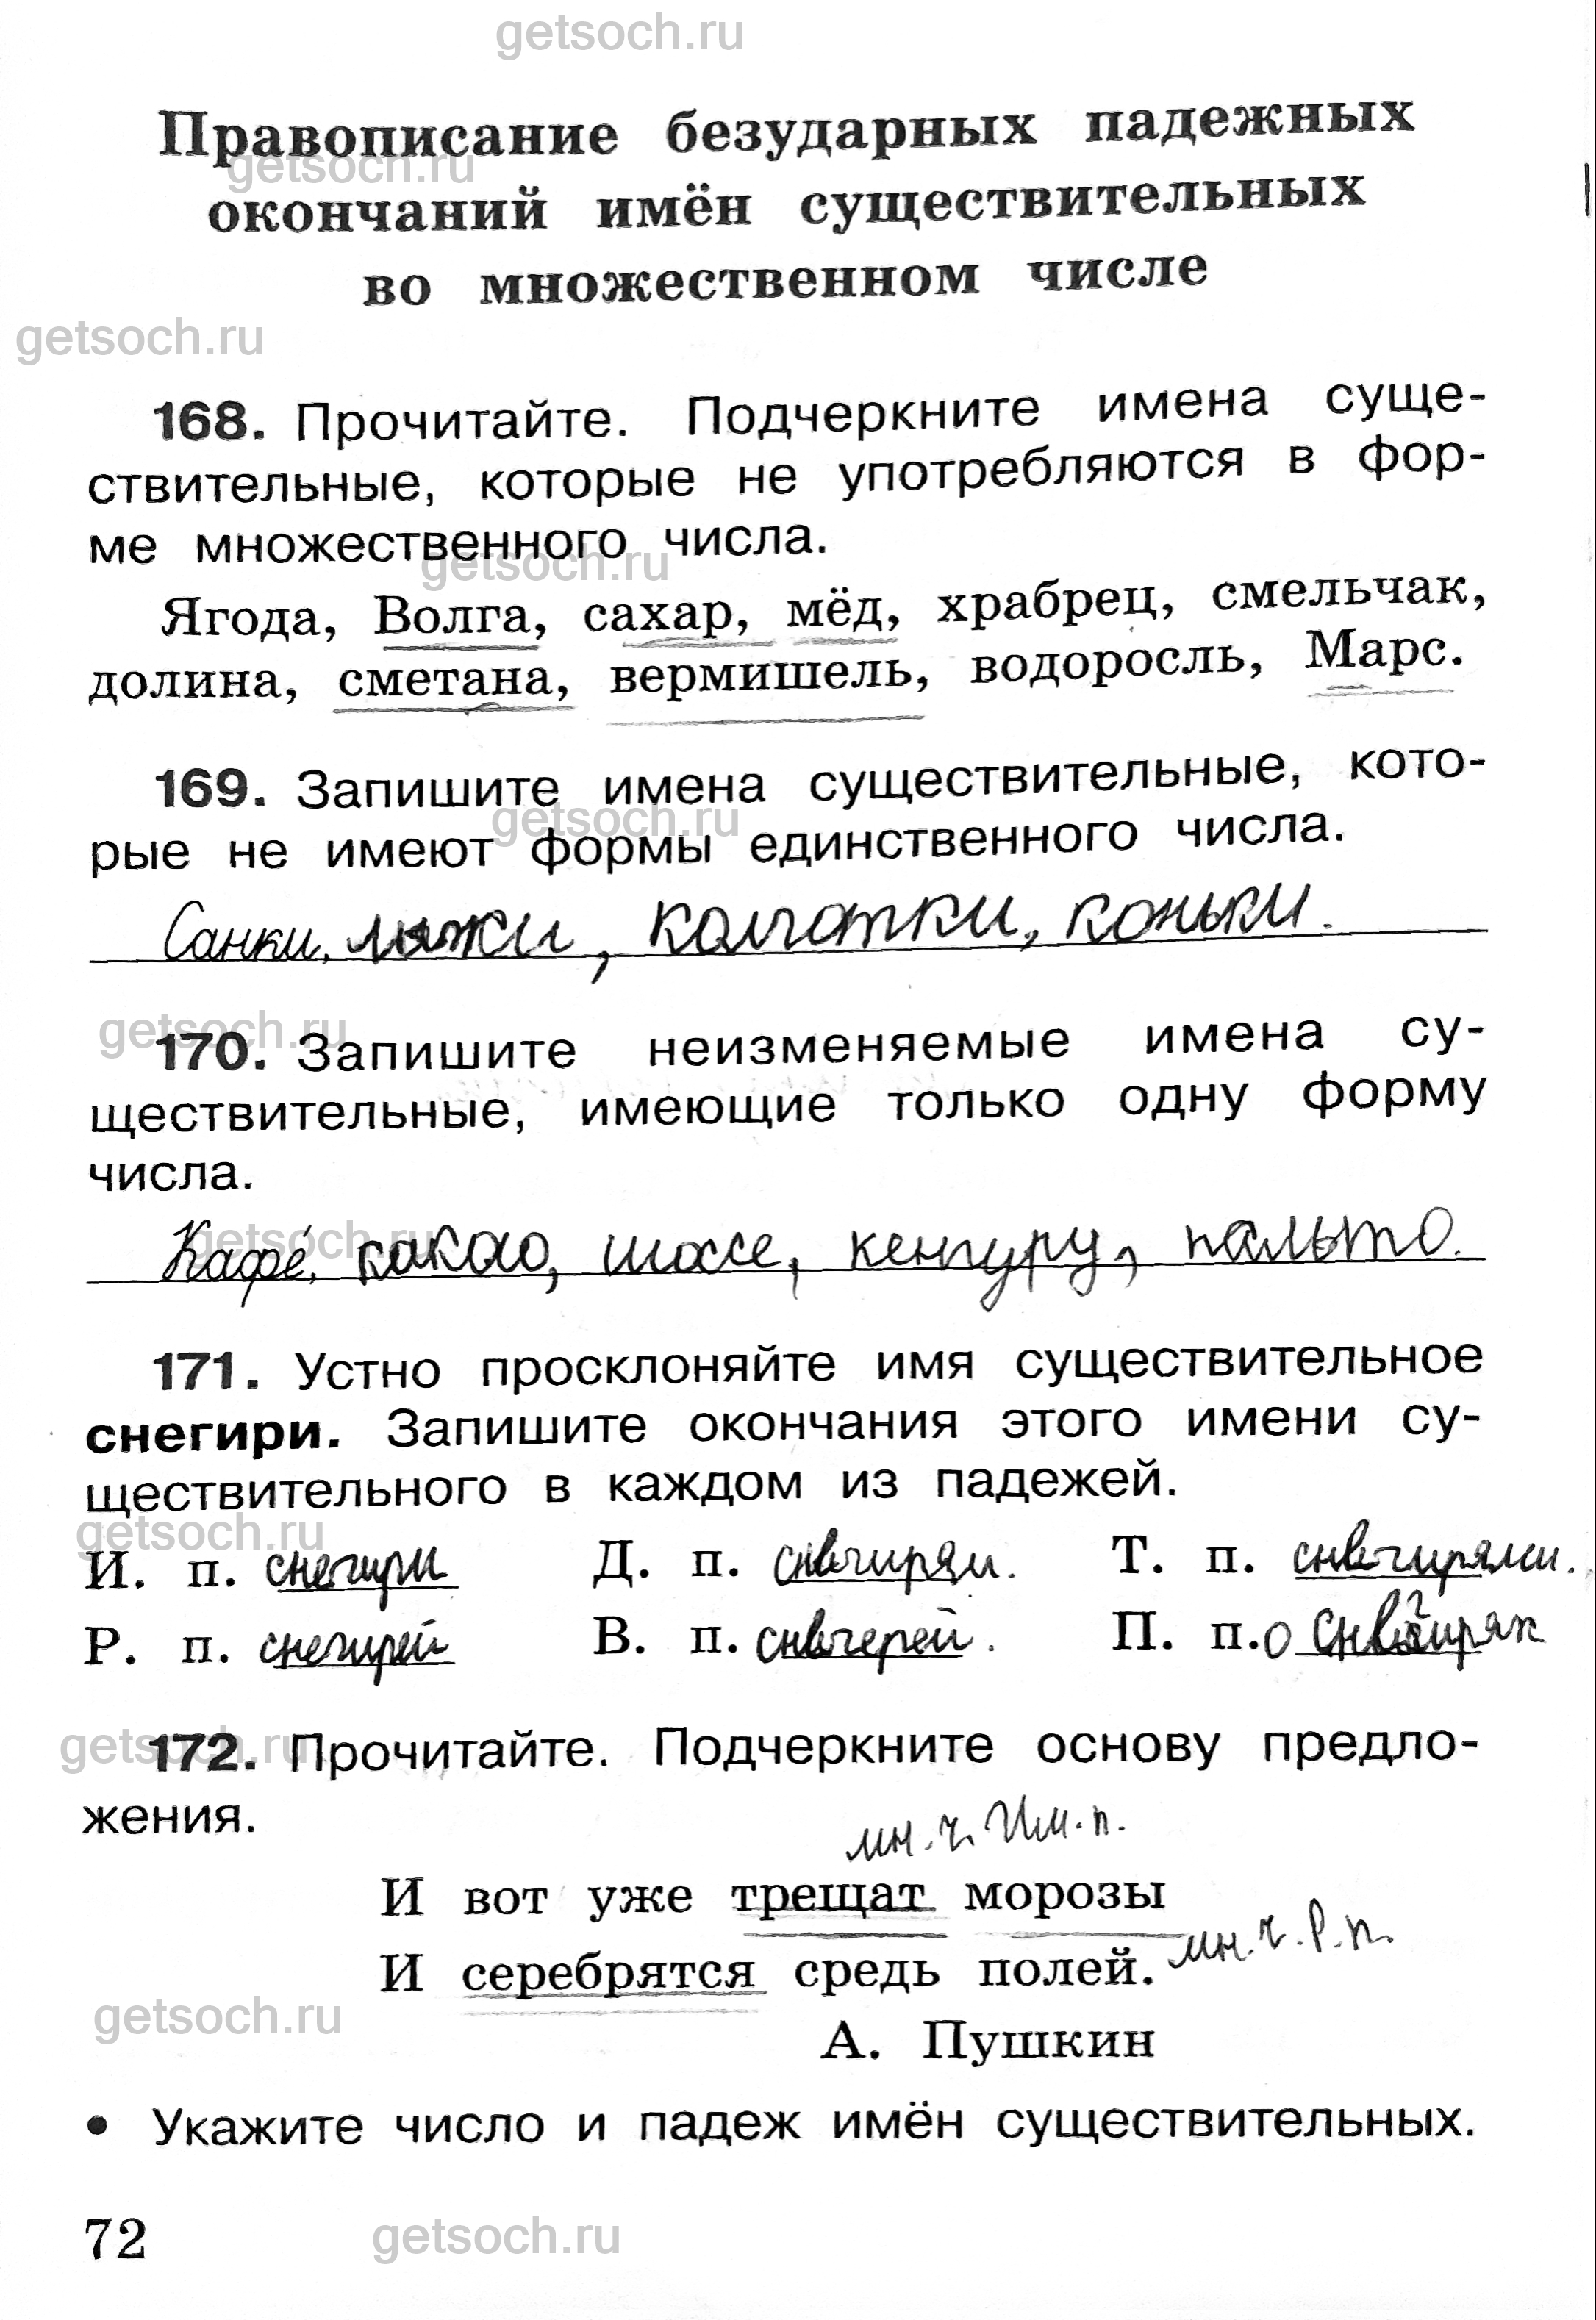 getsoch.ru
Правописание безударных падежных
getsoch.ru
окончаний имён существительных
во множественном числе
getsoch.ru
168. Прочитайте. Подчеркните имена суще-
ствительные, которые не употребляются в фор-
ме множественного числа.
getsoch.ru
Ягода, Волга, сахар, мёд, храбрец, смельчак,
долина, сметана, вермишель, водоросль, Марс.
169. Запишите имена существительные, кото-
getsoch.ru
рые не имеют формы единственного числа.
Санки, лыжи, колготки, коньки.
getsoch.ru
170. Запишите неизменяемые имена су-
ществительные, имеющие только одну форму
числа.
getsoch.ru
Кафе, какао, шоссе, кенгуру, пальто.
171. Устно просклоняйте имя существительное
снегири. Запишите окончания этого имени су-
ществительного в каждом из падежей.
getsoch.ru
И. п. снегири Д. п. снегирям. Т. п. снегирями.
Р. п. снегирей В. п. снегерей. П. п. о снегирях
getsoch.ru
172. Прочитайте. Подчеркните основу предло-
жения.
мн. ч. Им. п.
И вот уже трещат морозы
И серебрятся средь полей. мн. ч. Р. п.
getsoch.ru
А. Пушкин
• Укажите число и падеж имён существительных.
72
getsoch.ru